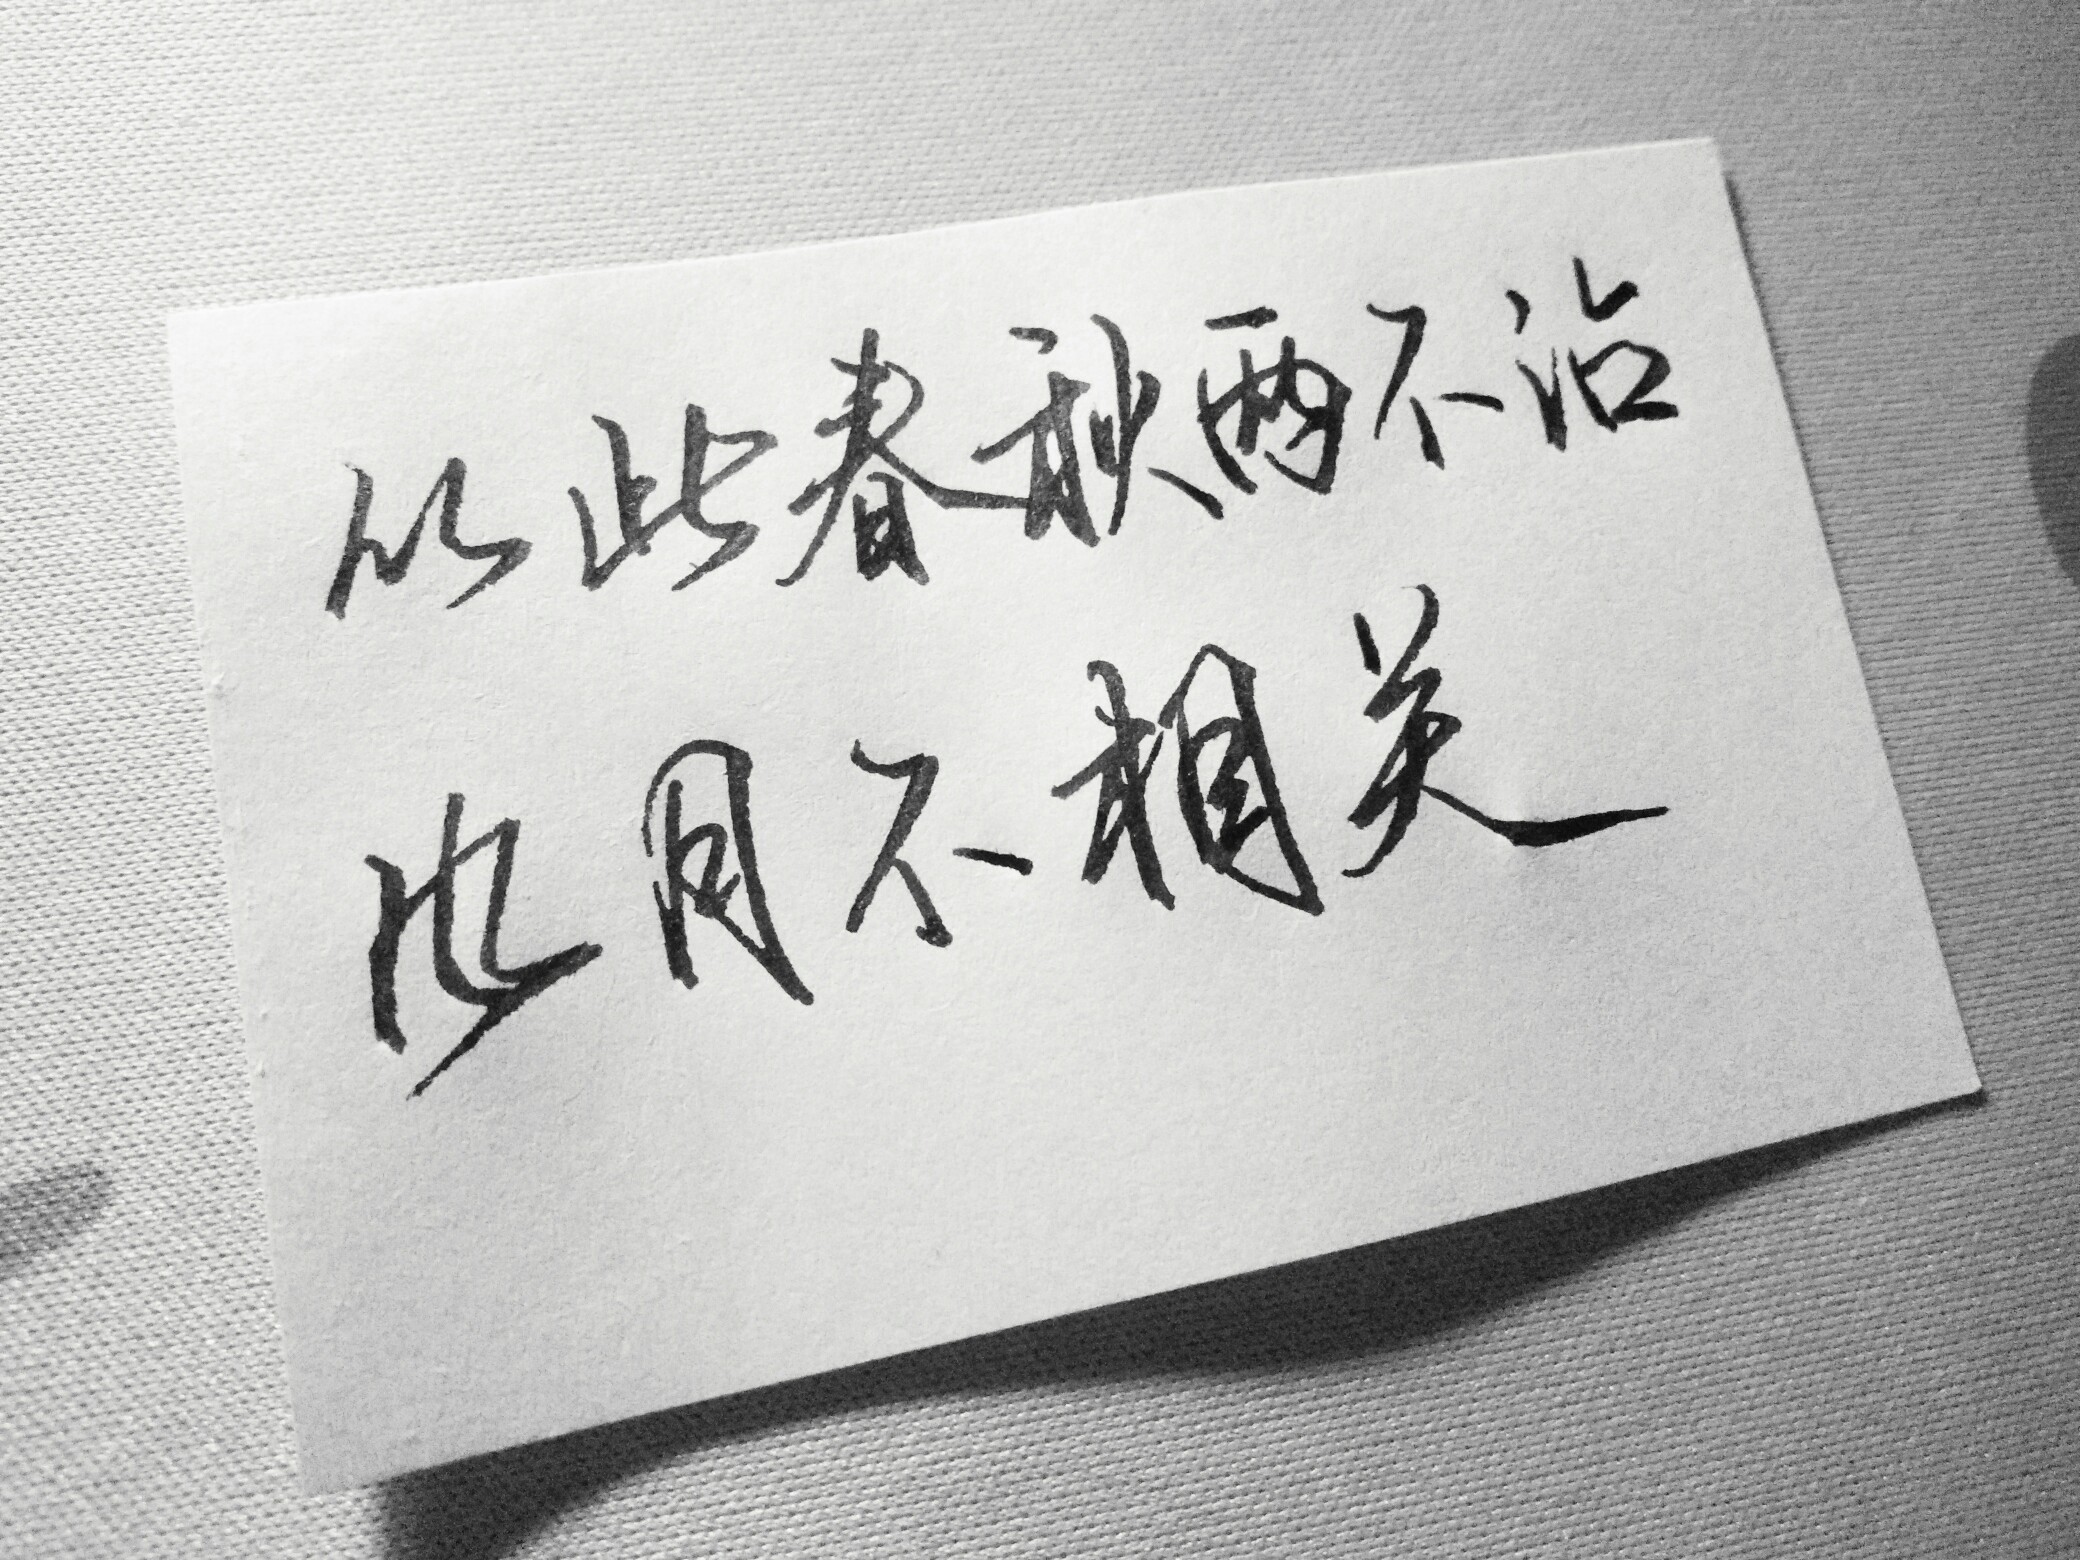 从此春秋两不沾
间不相关